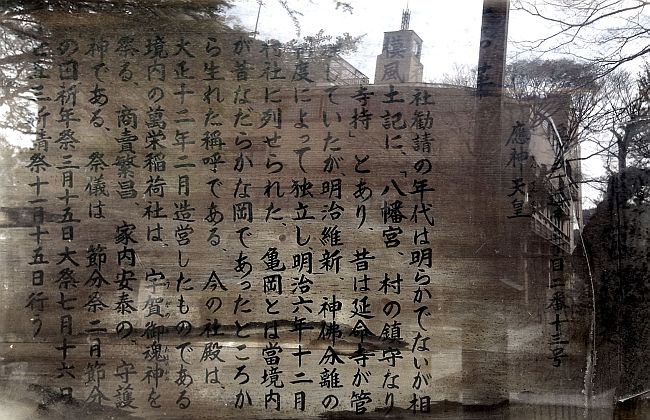 二番十三号
應神天皇
社勧請の年代は明らかでないが相
模風土記に、「八幡宮、村の鎮守なり
寺持」とあり、昔は延命寺が管
していたが、明治維新、神佛分離の
度によって独立し明治六年十二月
村社に列せられた、亀岡とは當境内
が昔なだらかな岡であったところか
ら生れた稱呼である、今の社殿は、
大正十二年二月造営したものである
境内の萬栄稲荷社は、宇賀御魂神を
祭る、商賣繁昌、家内安泰の、守護
神である、祭儀は、節分祭二月節分
の日祈年祭三月十五日大祭七月十六日
七五三祈請祭十一月十五日行う